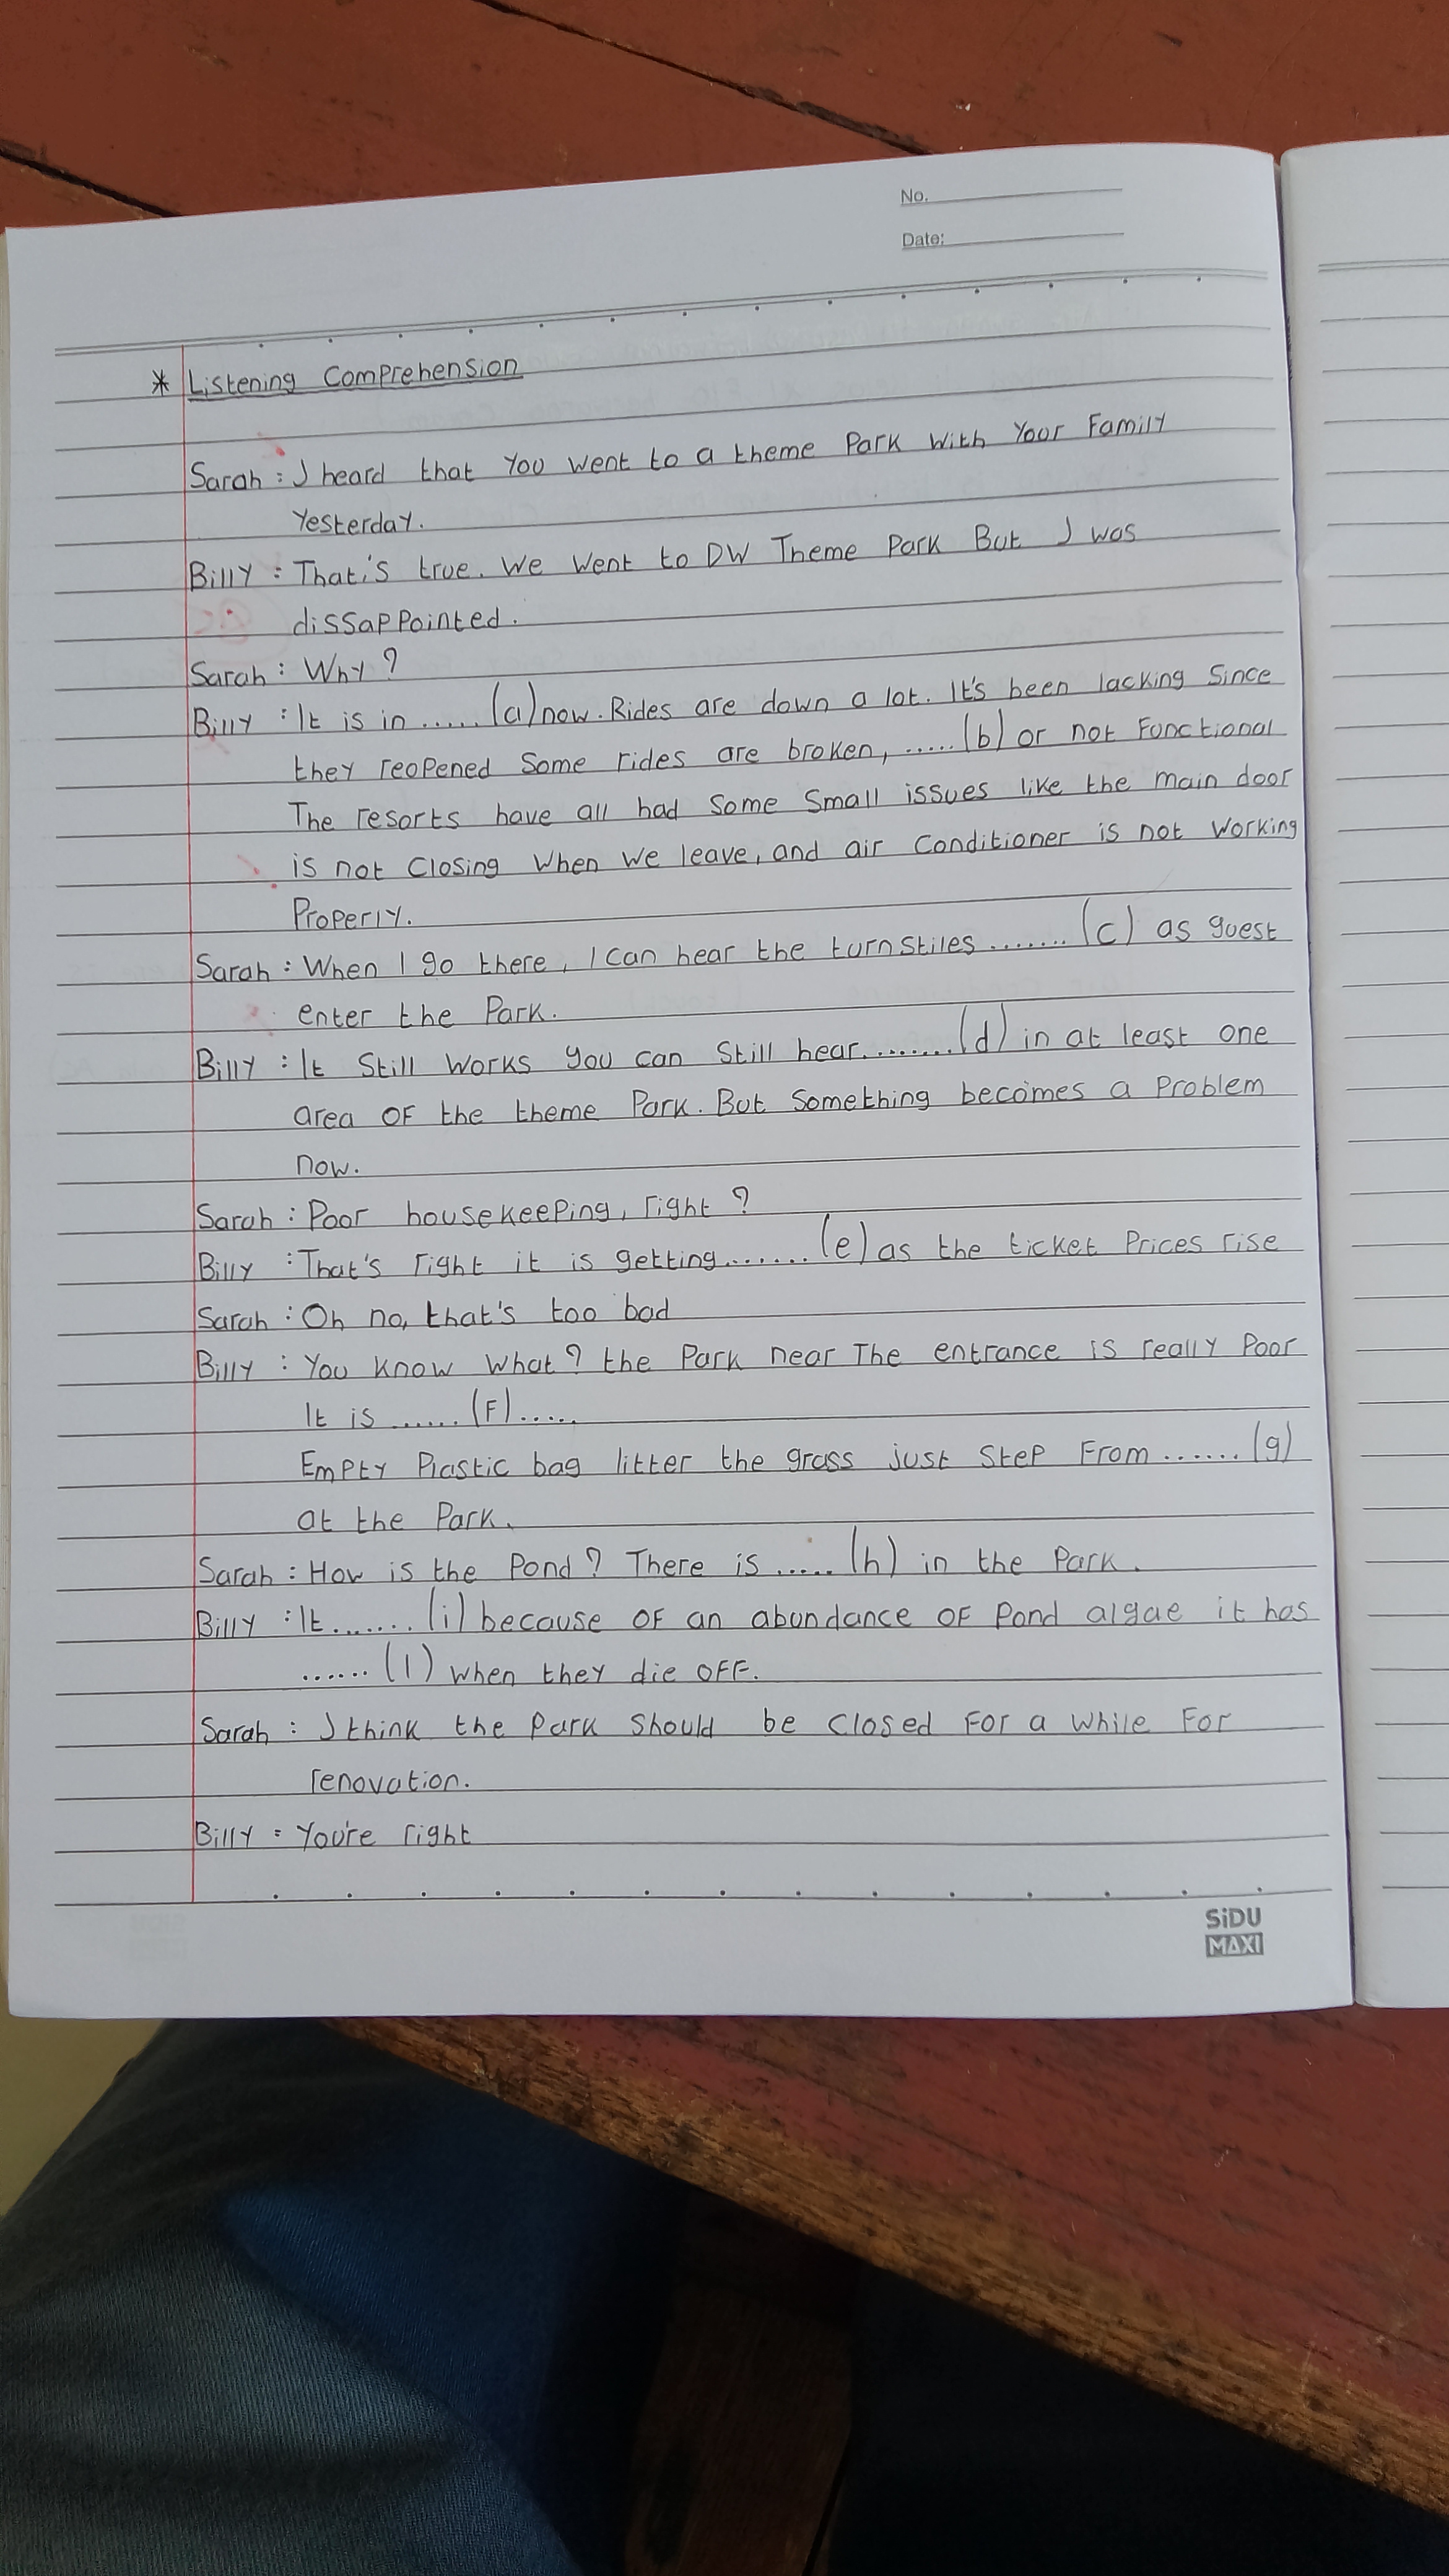 No.
Date:
* Listening Comprehension
Sarah : I heard that You went to a theme Park With Your Family
Yesterday.
Billy : That's true. We Went to DW Theme Park But I was
dissappointed.
Sarah : Why ?
Billy : It is in ..... (a) now. Rides are down a lot. It's been lacking Since
they reopened Some rides are broken, ..... (b) or not Functional
The resorts have all had Some Small issues like the main door
is not Closing When We leave, and air Conditioner is not Working
Properly.
Sarah : When I go there, I Can hear the turnstiles ....... (c) as guest
enter the Park.
Billy : It Still Works you can Still hear ........ (d) in at least one
area OF the theme Park. But Something becomes a Problem
now.
Sarah : Poor housekeeping, right ?
Billy : That's right it is getting ....... (e) as the ticket Prices rise
Sarah : Oh no, that's too bad
Billy : You know What ? the Park near The entrance is really Poor
It is ...... (F) .....
Empty Plastic bag litter the grass just Step From ...... (g)
at the Park.
Sarah : How is the Pond ? There is ..... (h) in the Park.
Billy : It ....... (i) because OF an abundance OF Pond algae it has
...... (l) when they die OFF.
Sarah : I think the Park Should be Closed For a While For
renovation.
Billy : You're right
SiDU
MAXI